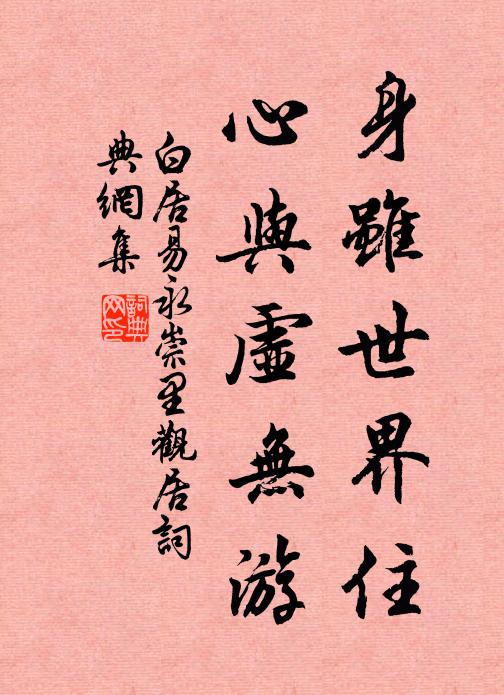 身雖世界住
心與虛無游
白居易永崇里觀居詞
典網集
詞典網印